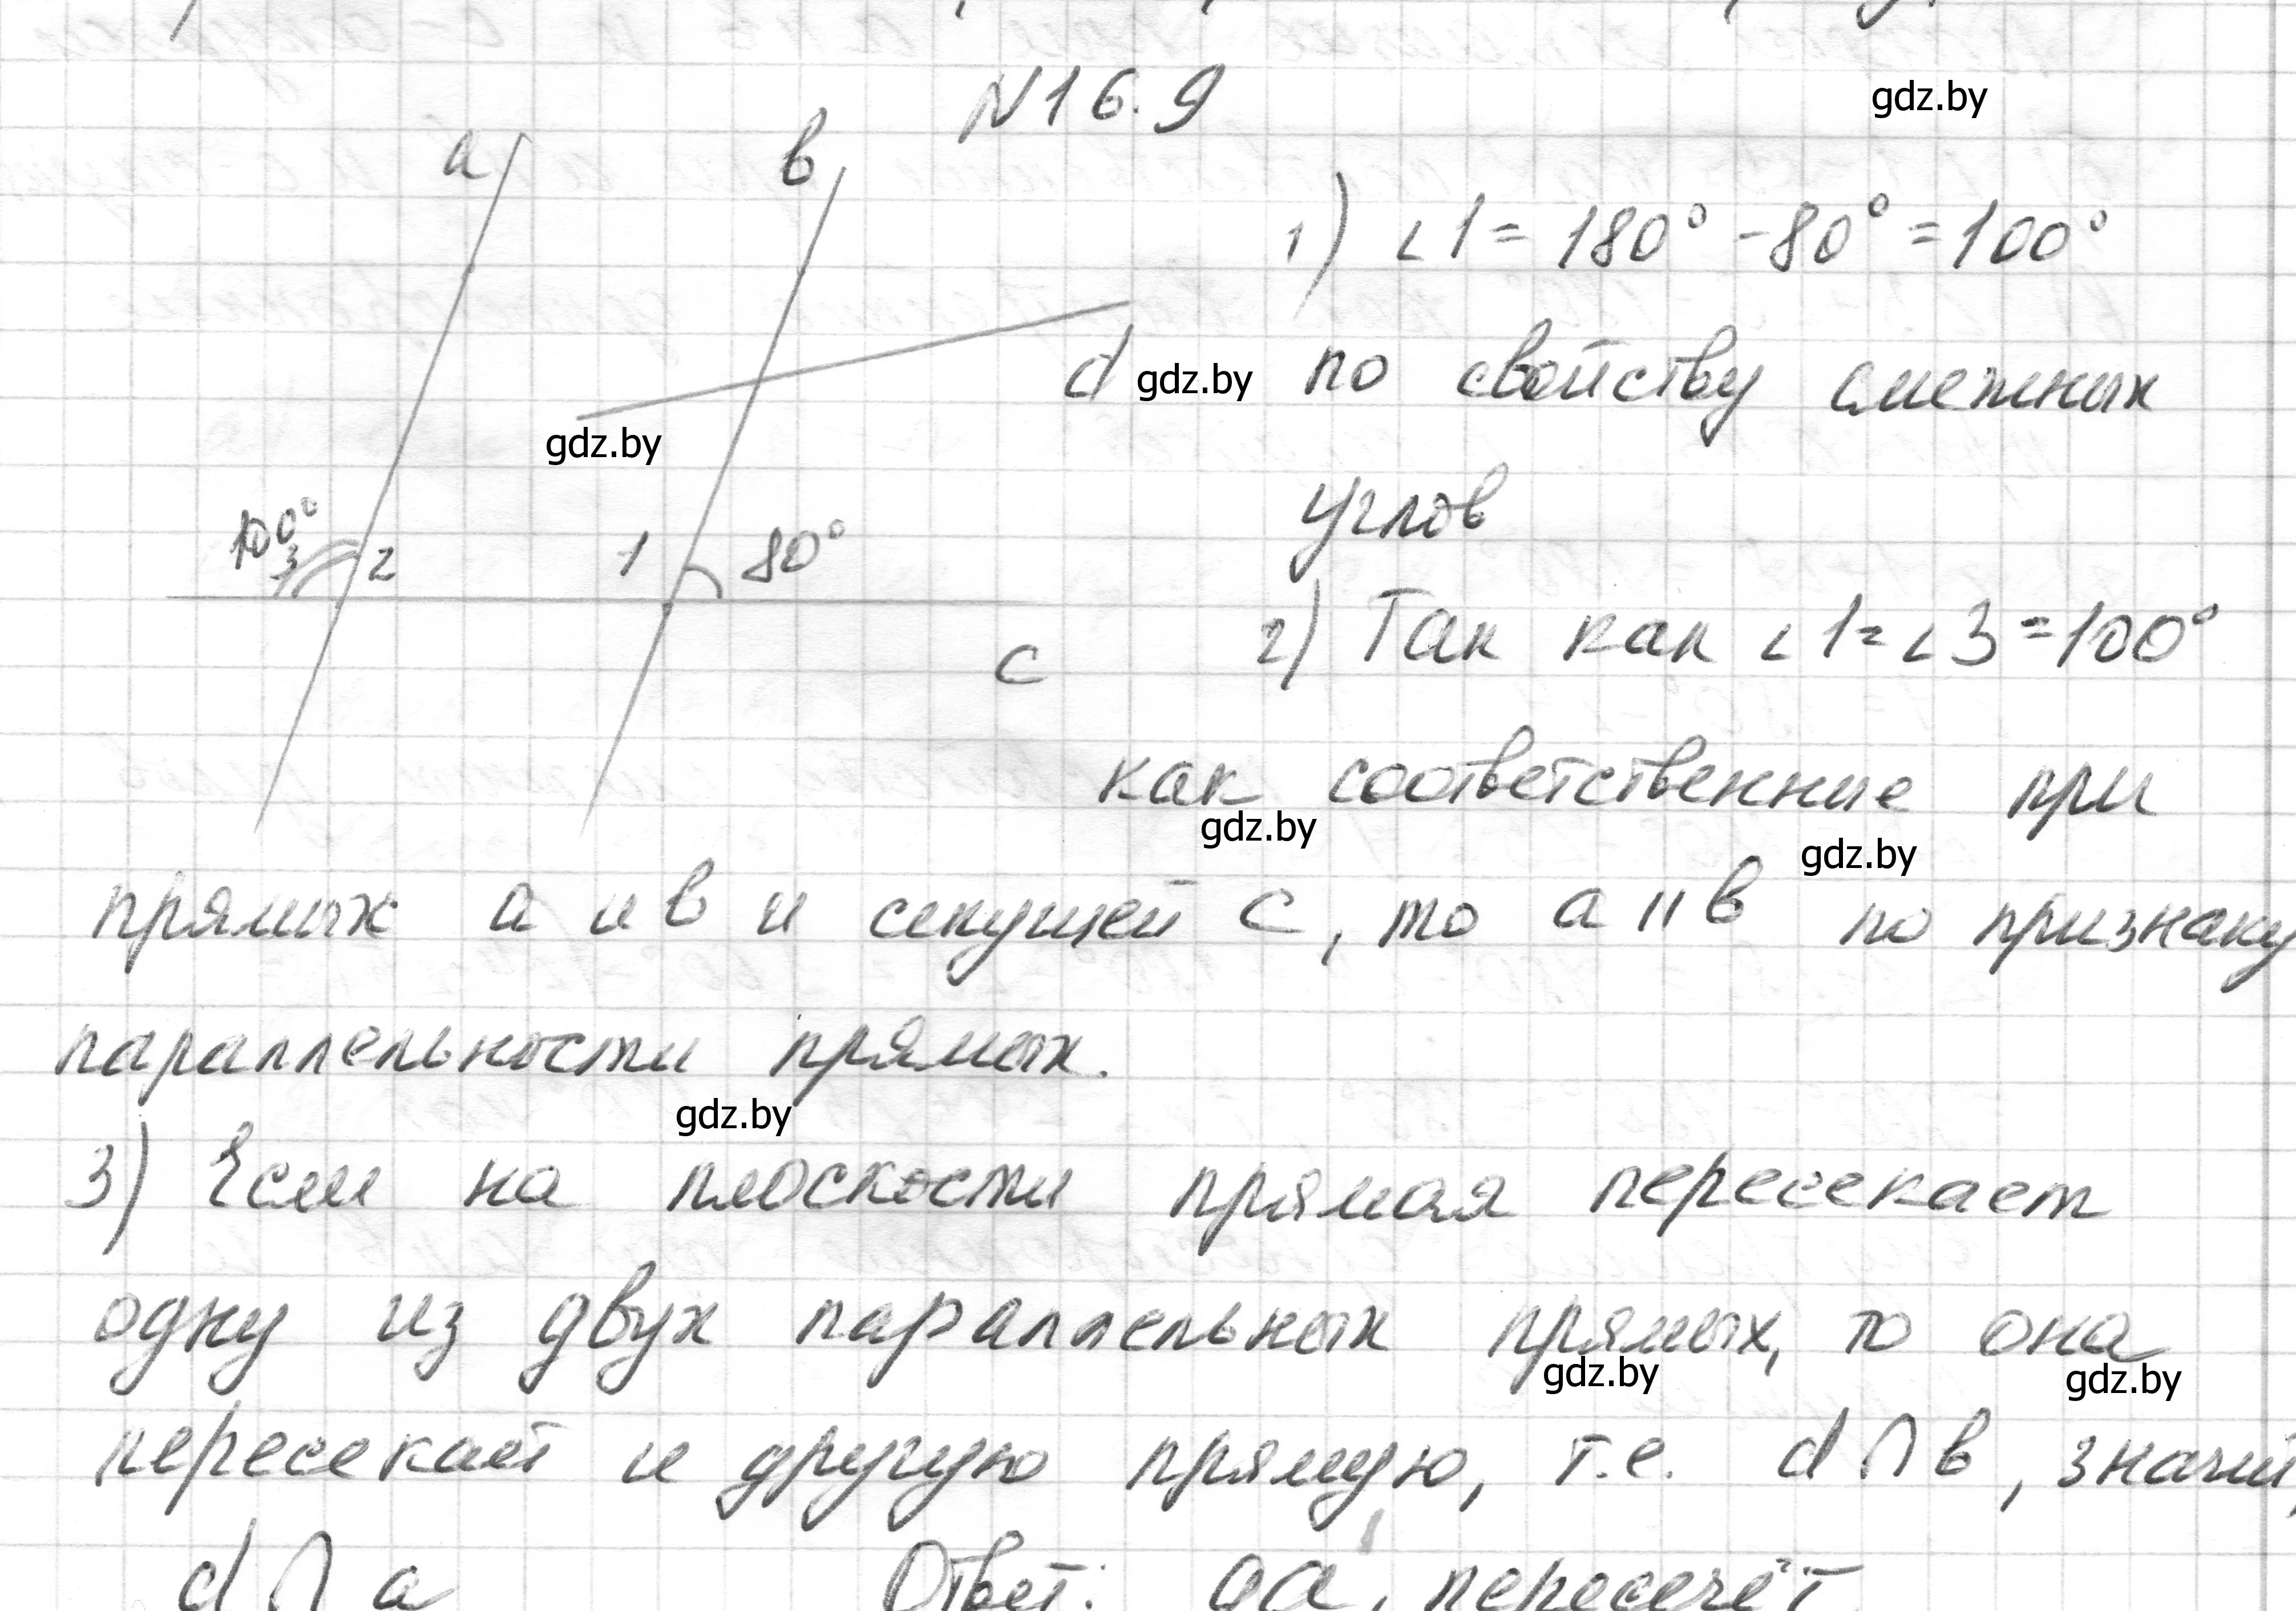 N16.9
gdz.by
a
в
1) ∠1 = 180° - 80° = 100°
d
gdz.by
по свойству смежных
gdz.by
углов
100°
3
2
1
80°
c
2) Так как ∠1 = ∠3 = 100°
как соответственные при
gdz.by
gdz.by
прямых a и в и секущей c, то a || в по признаку
параллельности прямых.
gdz.by
3) Если на плоскости прямая пересекает
одну из двух параллельных прямых, то она
gdz.by
gdz.by
пересекает и другую прямую, т.е. d ∩ в, значит,
d ∩ a Ответ: да, пересечёт.